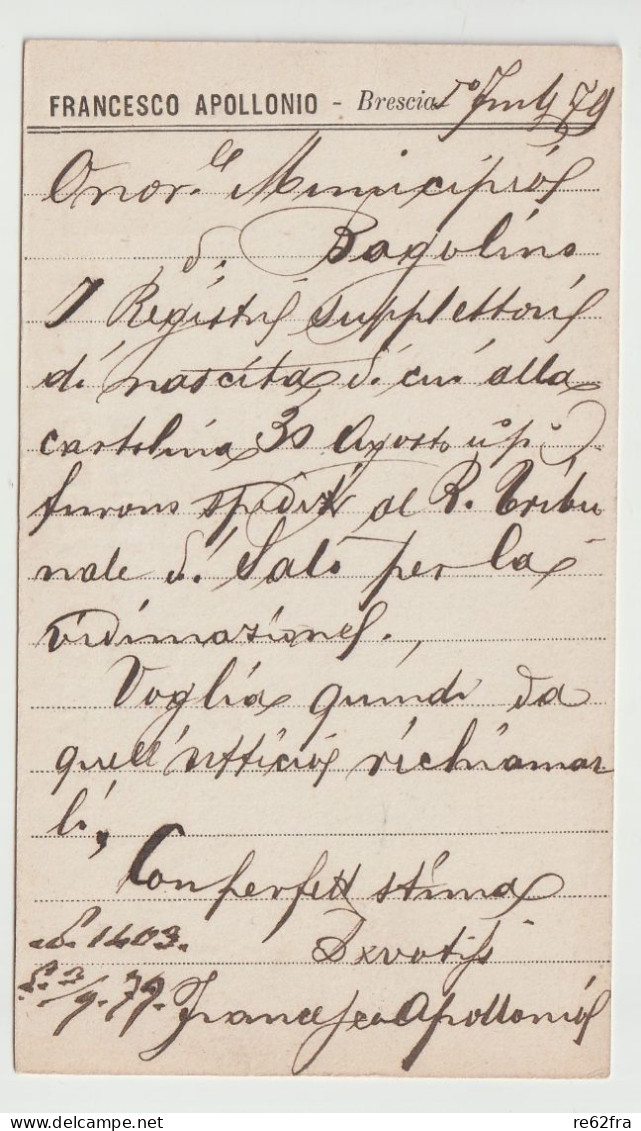 FRANCESCO APOLLONIO - Brescia 79
Onor.le Municipio
di Bagolino
I Registri supplettori
di nascita di cui alla
cartolina 30 Agosto u.p.
furono spediti al R. Tribu
nale di Salò per la
vidimazione.
Voglia quindi da
quell'ufficio richiamar
li,
Con perfetta stima
N. 1403. Devotiss
3/9. 79. Francesco Apollonio
re62fra